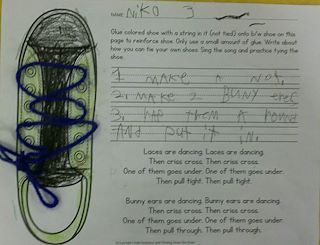 NAME NIKO 3
Glue colored shoe with a string in it (not tied) onto b/w shoe on this
page to reinforce shoe. Only use a small amount of glue. Write about
how you can tie your own shoes. Sing the song and practice tying the
shoe.
1 MAKE A NOT,
2. MAKE 2 BUNY erec
3, tie them A Round
And put it in.
Laces are dancing. Laces are dancing.
Then criss cross. Then criss cross.
One of them goes under. One of them goes under.
Then pull tight. Then pull tight.
Bunny ears are dancing. Bunny ears are dancing.
Then criss cross. Then criss cross.
One of them goes under. One of them goes under.
Then pull through. Then pull through.